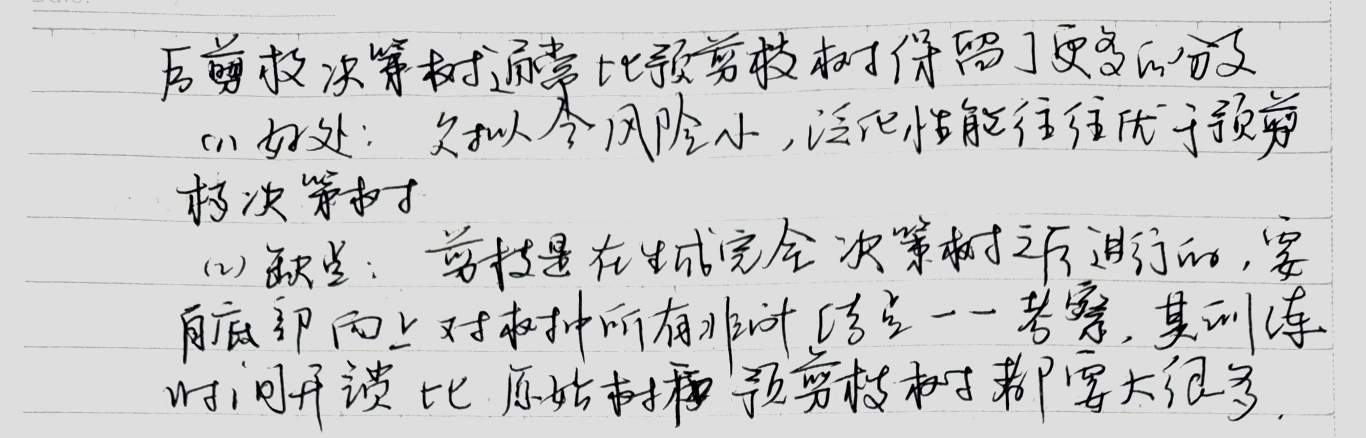 后剪枝决策树通常比预剪枝树保留了更多的分支
(1) 好处：欠拟合风险小，泛化性能往往优于预剪
枝决策树
(2) 缺点：剪枝是在生成完全决策树之后进行的，要
自底部向上对树中所有非叶结点一一考察，其训练
时间开销比原始树和预剪枝树都要大很多.